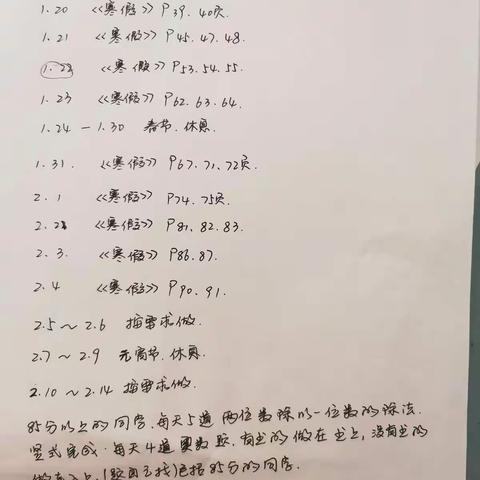 1.20 《寒假》P39.40页.
1.21 《寒假》P45.47.48.
1.22 《寒假》P53.54.55.
1.23 《寒假》P62.63.64.
1.24 — 1.30 春节.休息.
1.31. 《寒假》P67.71.72页.
2.1 《寒假》P74.75页.
2.2 《寒假》P81.82.83.
2.3. 《寒假》P86.87.
2.4 《寒假》P90.91.
2.5～2.6 按需求做.
2.7～2.9 元宵节.休息.
2.10～2.14 按需求做.
85分以上的同学.每天5道 两位数除以一位数的除法.
竖式完成.每天4道奥数题.有书的做在书上,没有书的
做在上.(题自己找)包括85分的同学.